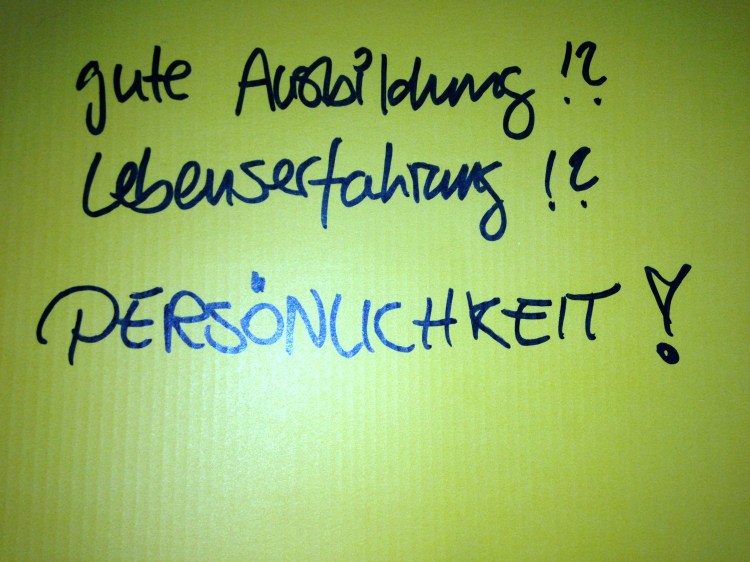 gute Ausbildung !?
Lebenserfahrung !?
PERSÖNLICHKEIT !